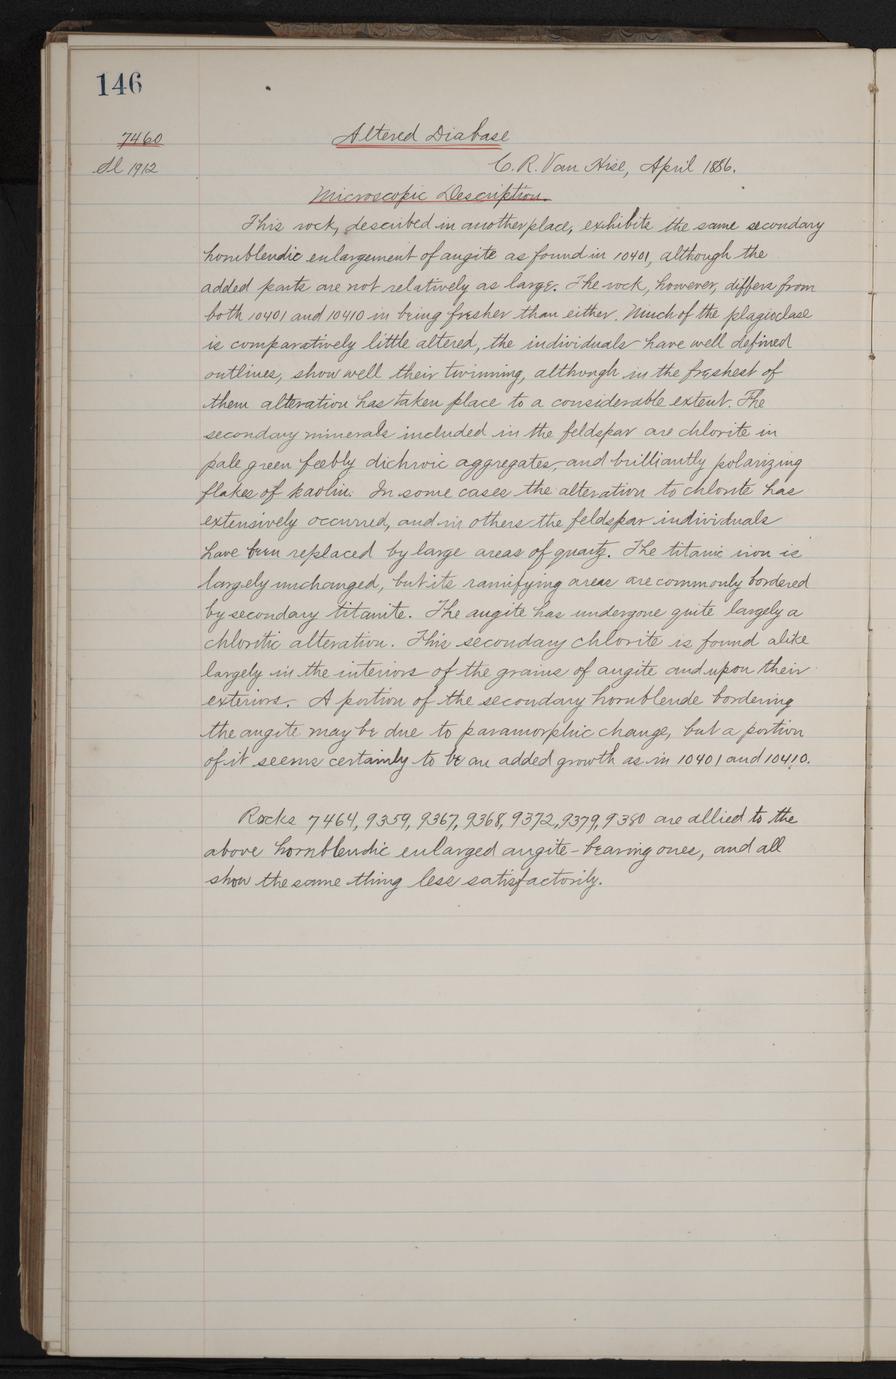 146
7460
Altered Diabase
Sl 1912
C. R. Van Hise, April 1886.
Microscopic Description.
This rock, described in another place, exhibits the same secondary
hornblendic enlargement of augite as found in 10401, although the
added parts are not relatively as large. The rock, however, differs from
both 10401 and 10410 in being fresher than either. Much of the plagioclase
is comparatively little altered, the individuals have well defined
outlines, show well their twinning, although in the freshest of
them alteration has taken place to a considerable extent. The
secondary minerals included in the feldspar are chlorite in
pale green feebly dichroic aggregates, and brilliantly polarizing
flakes of kaolin. In some cases the alteration to chlorite has
extensively occurred, and in others the feldspar individuals
have been replaced by large areas of quartz. The titanic iron is
largely unchanged, but its ramifying areas are commonly bordered
by secondary titanite. The augite has undergone quite largely a
chloritic alteration. This secondary chlorite is found alike
largely in the interiors of the grains of augite and upon their
exteriors. A portion of the secondary hornblende bordering
the augite may be due to paramorphic change, but a portion
of it seems certainly to be an added growth as in 10401 and 10410.
Rocks 7464, 9359, 9367, 9368, 9372, 9379, 9380 are allied to the
above hornblendic enlarged augite-bearing ones, and all
show the same thing less satisfactorily.